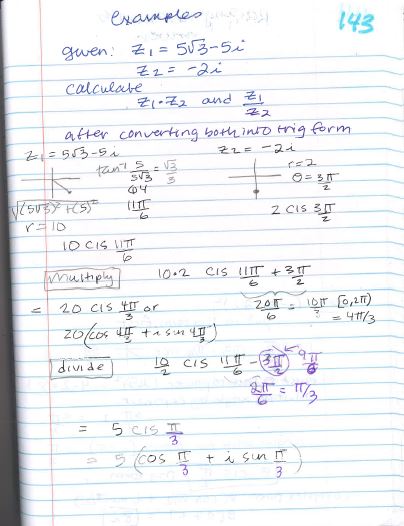 examples 143
given: z₁ = 5√3 - 5i
z₂ = -2i
calculate
z₁·z₂ and z₁/z₂
after converting both into trig form
z₁ = 5√3 - 5i z₂ = -2i
tan⁻¹ 5/5√3 = √3/3 r = 2
Q4 θ = 3π/2
√(5√3)² + (5)² 11π/6 2 cis 3π/2
r = 10
10 cis 11π/6
Multiply 10·2 cis 11π/6 + 3π/2
= 20 cis 4π/3 or 20π/6 = 10π/3 [0,2π)
= 4π/3
20(cos 4π/3 + i sin 4π/3)
divide 10/2 cis 11π/6 - 3π/2 9π/6
2π/6 = π/3
= 5 cis π/3
= 5 (cos π/3 + i sin π/3)